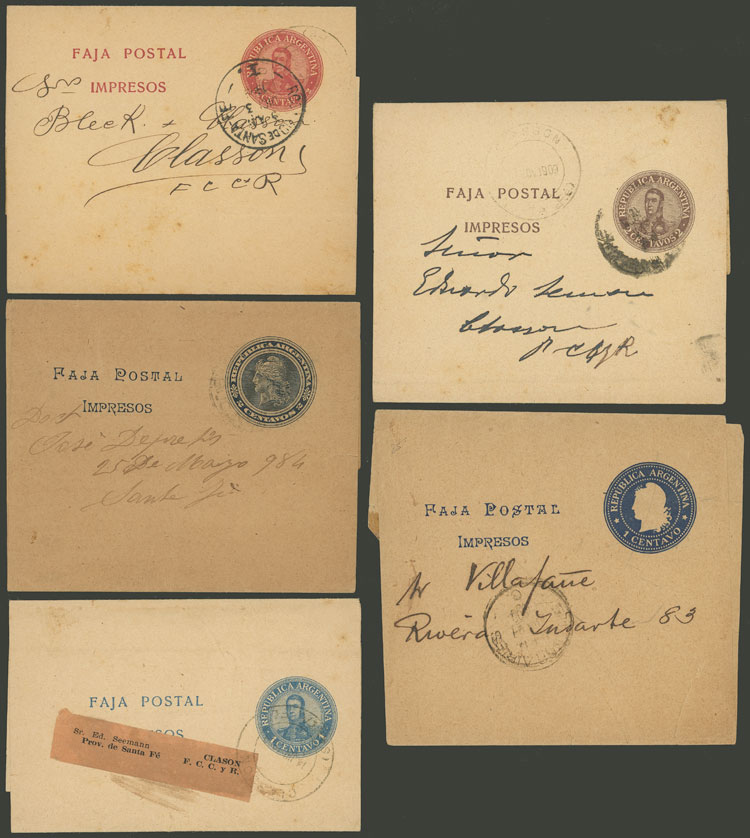 FAJA POSTAL
IMPRESOS
REPUBLICA ARGENTINA
CENTAVO
DE SANTA FE
Sres
Bleck +
Classon
F C C R
FAJA POSTAL
IMPRESOS
REPUBLICA ARGENTINA
Señor
Eduardo Seeman
Classon
F C C y R
FAJA POSTAL
IMPRESOS
REPÚBLICA ARGENTINA
CENTAVOS
José
25 De Mayo 984
Santa Fé
FAJA POSTAL
IMPRESOS
REPUBLICA ARGENTINA
1 CENTAVO
Villafañe
Rivera Indarte 83
AIRES
FAJA POSTAL
ESOS
REPUBLICA ARGENTINA
1 CENTAVO 1
Sr. Ed. Seemann
Prov. de Santa Fé
CLASON
F. C. C. y R.